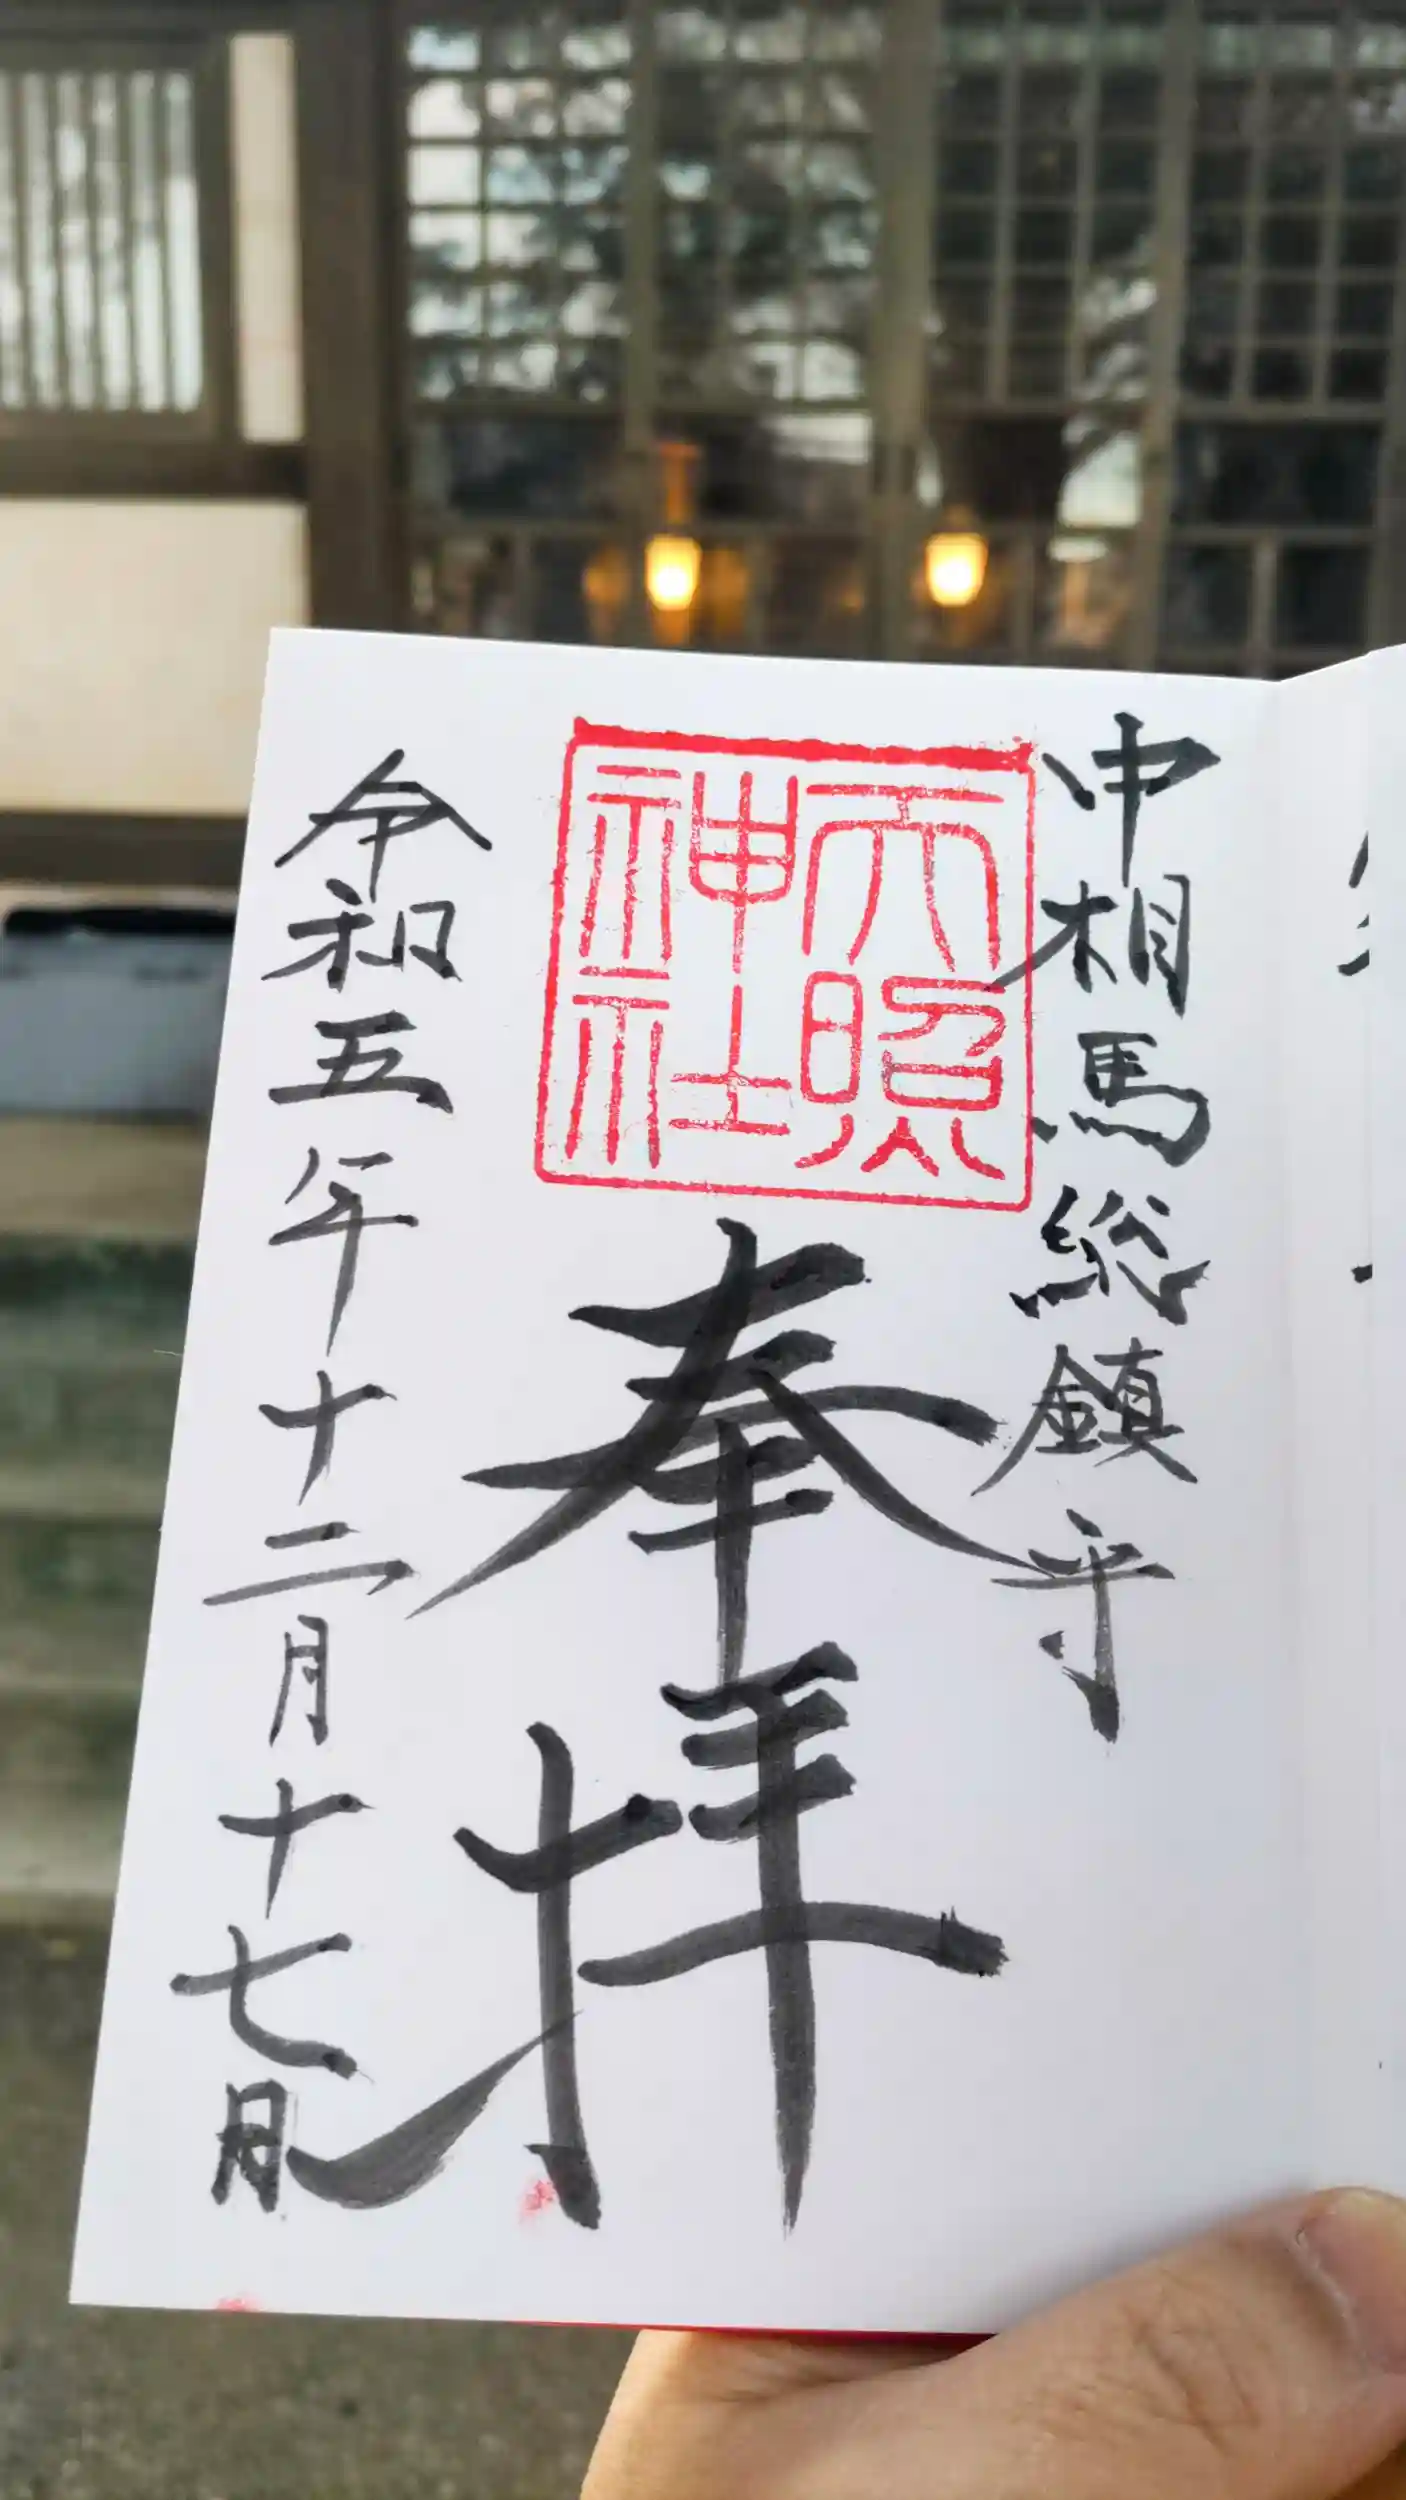 中相馬総鎮守
天照
神社
奉拝
令和五年十二月十七日